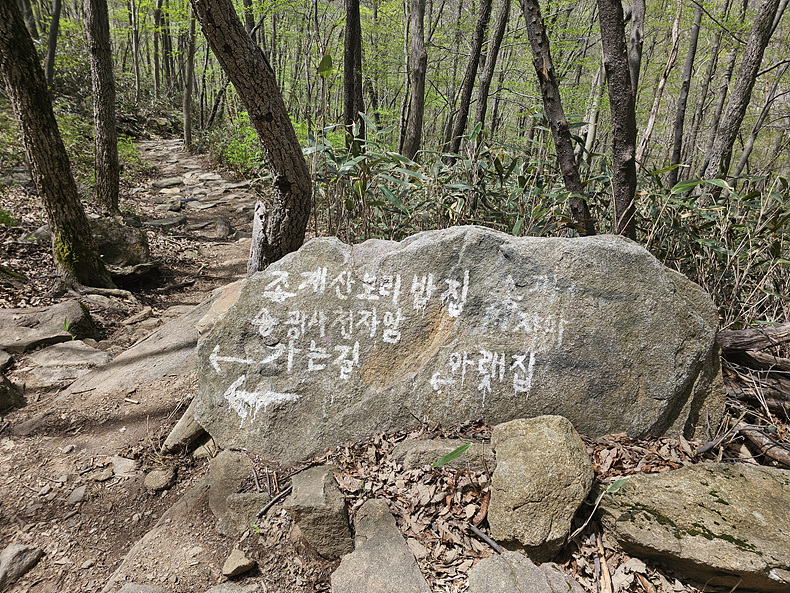 조계산보리밥집
송광사천자암
가는길
아랫집